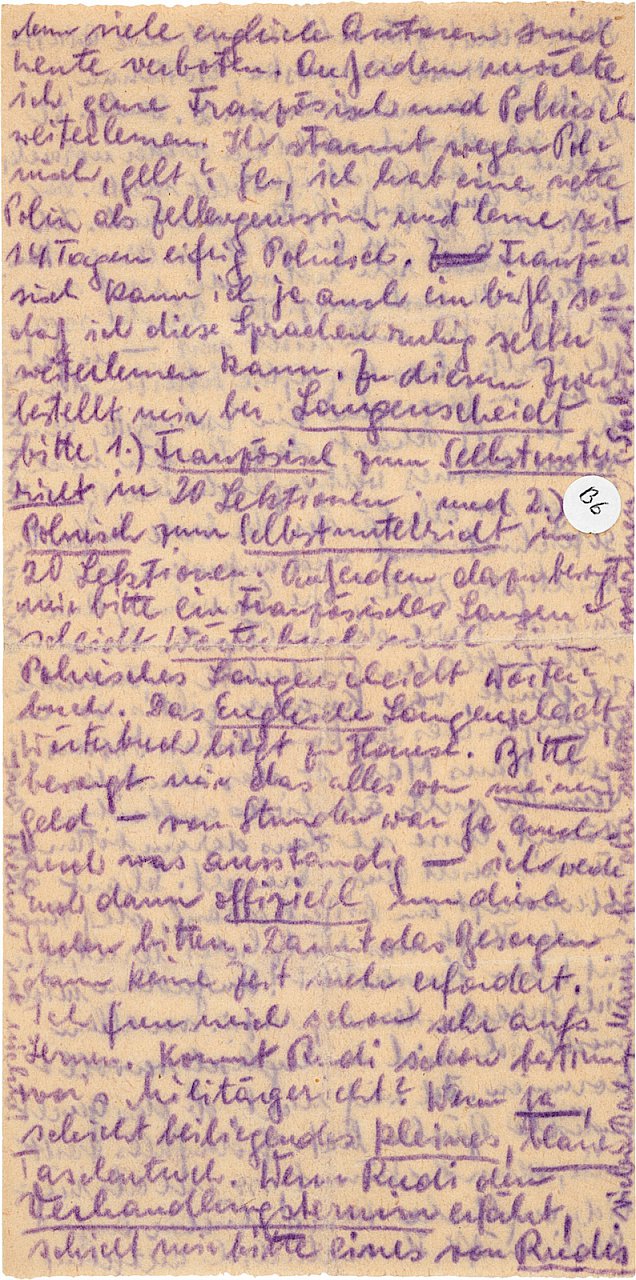 denn viele englische Autoren sind
heute verboten. Außerdem möchte
ich gerne Französisch und Polnisch
weiterlernen. Ihr staunt wegen Pol-
nisch, gelt? Ja, ich hab eine nette
Polin als Zellengenossin und lerne seit
14 Tagen eifrig Polnisch. Franzö-
sisch kann ich ja auch ein bißl, so-
daß ich diese Sprachen ruhig selber
weiterlernen kann. Zu diesem Zweck
bestellt mir bei Langenscheidt
bitte 1.) Französisch zum Selbstunter-
richt in 20 Lektionen und 2.)
Polnisch zum Selbstunterricht in
20 Lektionen. Außerdem dazu besorgt
mir bitte ein Französisches Langen-
scheidt Wörterbuch und ein
Polnisches Langenscheidt Wörter-
buch. Das Englische Langenscheidt
Wörterbuch liegt zu Hause. Bitte
besorgt mir das alles von meinem
Geld – von Stunden war ja auch
noch was ausständig – ich werde
Euch dann offiziell um diese
Sachen bitten. Damit das Besorgen
dann keine Zeit mehr erfordert.
Ich freu mich schon sehr aufs
Lernen. Kommt Rudi schon bestimmt
vors Militärgericht? Wenn ja,
schickt beiliegendes kleines, blaues
Taschentuch. Wenn Rudi den
Verhandlungstermin erfährt,
schickt mir bitte eines von Rudis
B6